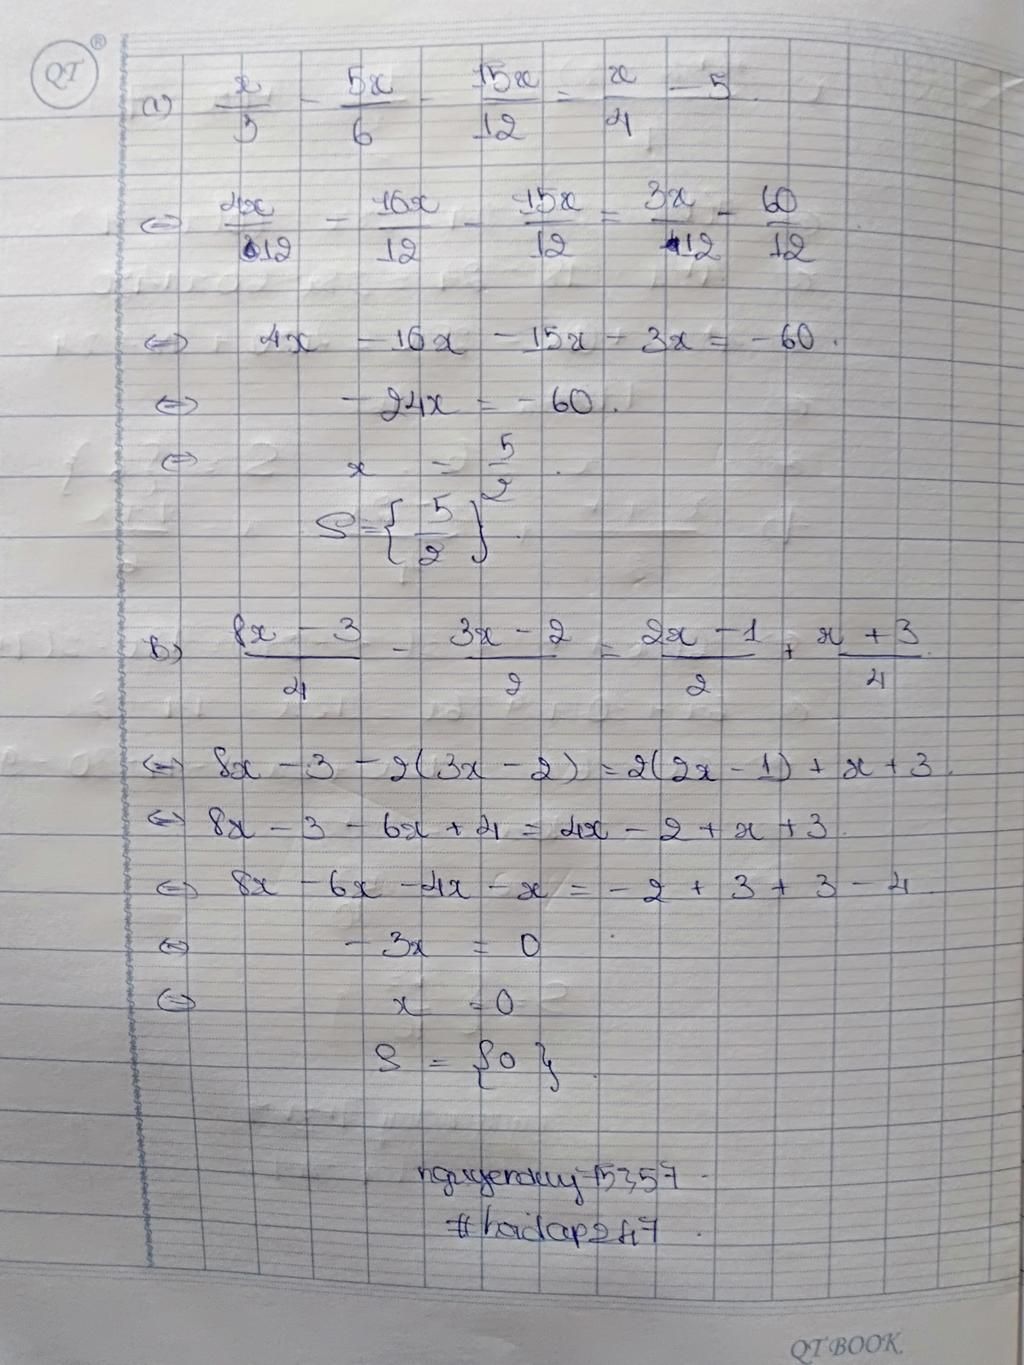 QT ®
a) x/3 - 5x/6 - 15x/12 = x/4 - 5.
⇔ 4x/12 - 10x/12 - 15x/12 = 3x/12 - 60/12
⇔ 4x - 10x - 15x - 3x = -60.
⇔ -24x = -60.
⇔ x = 5/2.
S = {5/2}.
b) 8x - 3/4 - 3x - 2/2 = 2x - 1/2 + x + 3/4.
⇔ 8x - 3 - 2(3x - 2) = 2(2x - 1) + x + 3.
⇔ 8x - 3 - 6x + 4 = 4x - 2 + x + 3.
⇔ 8x - 6x - 4x - x = -2 + 3 + 3 - 4
⇔ -3x = 0
⇔ x = 0
S = {0}.
#hoidap247.
QT BOOK.